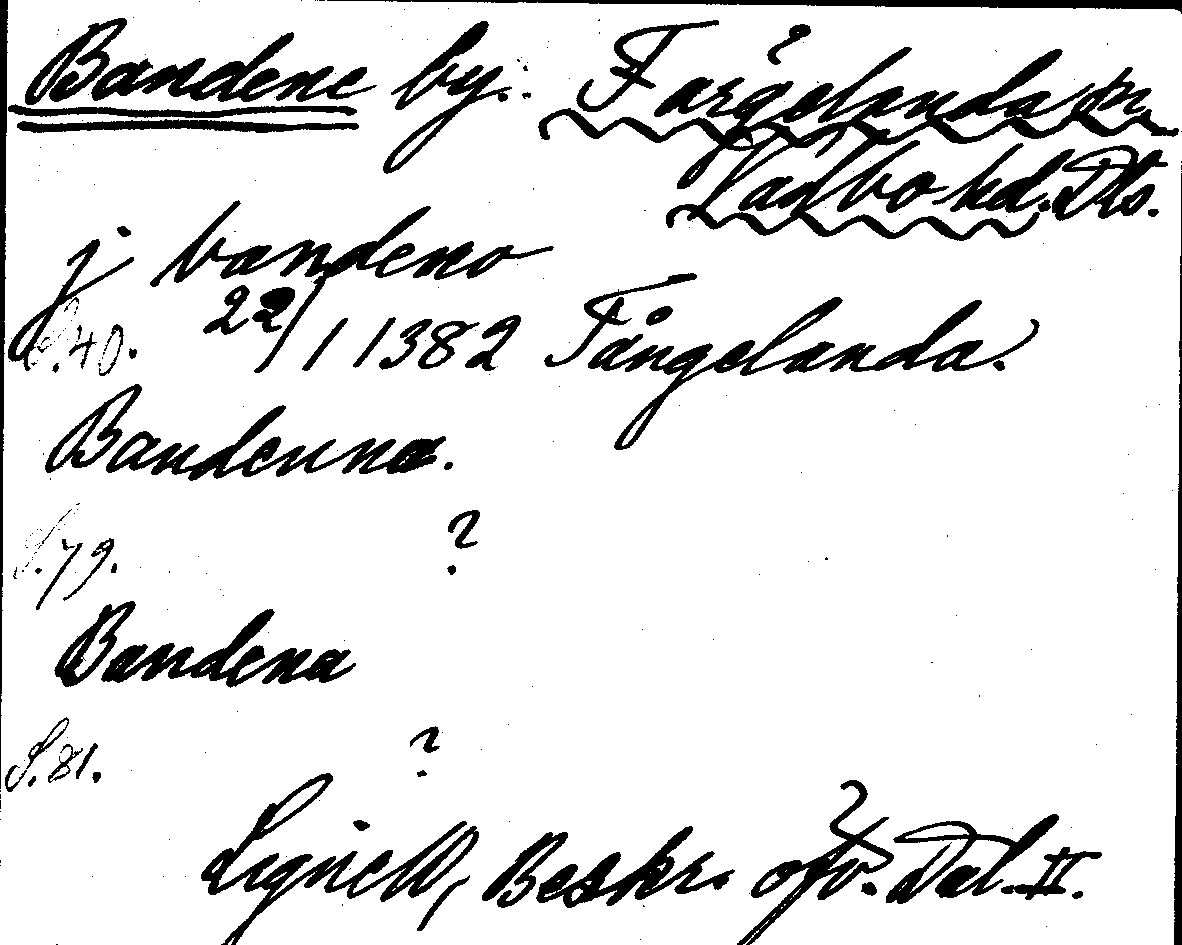 Bandene by. Färgelanda sn
Valbo hd. Dls.
j bandeno
S.40. 22/1 1382 Fångelanda.
Bandenna.
S.79. ?
Bandena
S.81. ?
Lignell, Beskr. öfv. Dal. II.